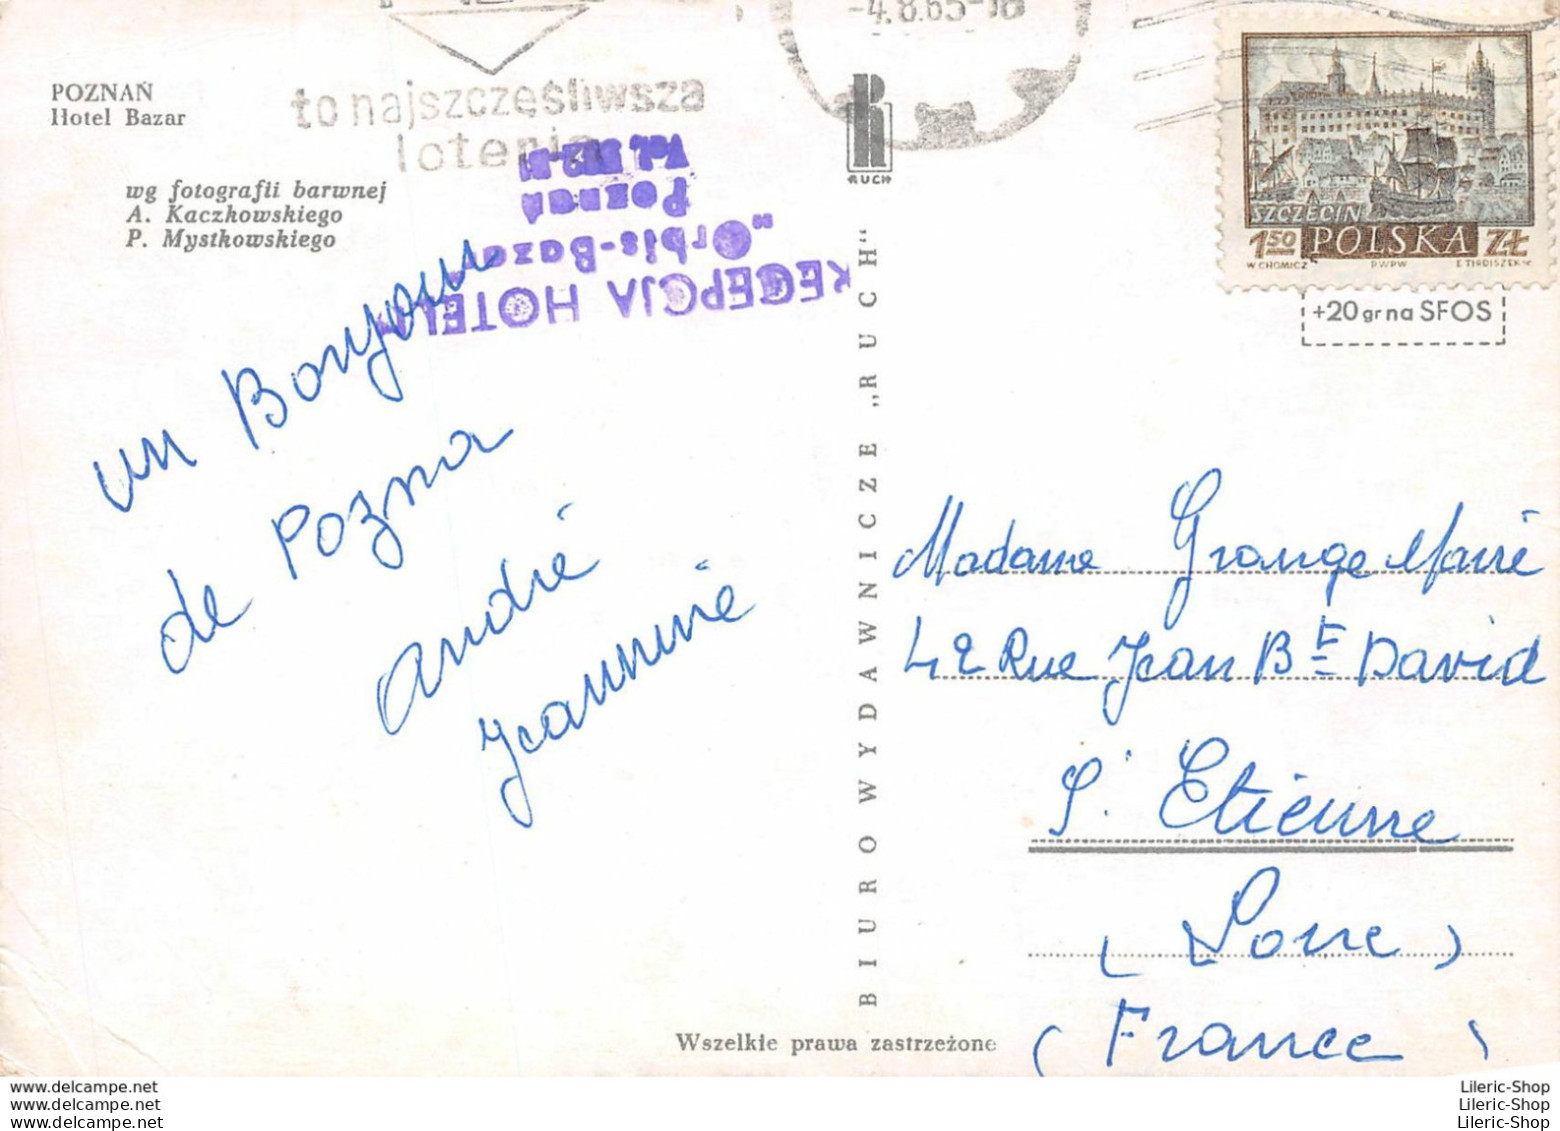 POZNAŃ
Hotel Bazar
wg fotografii barwnej
A. Kaczkowskiego
P. Mystkowskiego
to najszczęśliwsza
loteria
-4.8.65-18
RUCH
RECEPCJA HOTELU
„Orbis-Bazar"
Poznań
un Bonjour
de Pozna
André
Jeannine
BIURO WYDAWNICZE „RUCH"
Wszelkie prawa zastrzeżone
SZCZECIN
1,50 POLSKA ZŁ
W CHOMICZ PWPW
+20 gr na SFOS
Madame Grange
42 Rue Jean Bte David
St Etienne
(Loire)
(France)
Lileric-Shop
Lileric-Shop
Lileric-Shop
www.delcampe.net
www.delcampe.net
www.delcampe.net